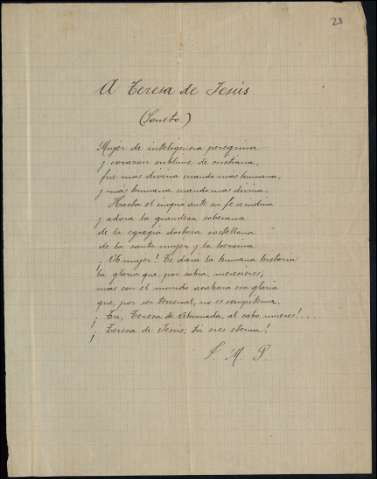 23
A Teresa de Jesús
(Soneto)
Mujer de inteligencia peregrina
y corazon sublime de cristiana,
fué mas divina cuando mas humana,
y mas humana cuando mas divina.
Hasta el impio ante su fe se inclina
y adora la grandeza soberana
de la egregia doctora castellana
de la santa mujer y la heroina
¡Oh mujer! Te dará la humana historia
la gloria que, por sabia, mereciéres,
mas con el mundo acabará esa gloria
que, por ser terrenal, no es
¡Tu, Teresa de Ahumada, al cabo mueres!....
¡Teresa de Jesús, tu eres eterna!
J. M. P.